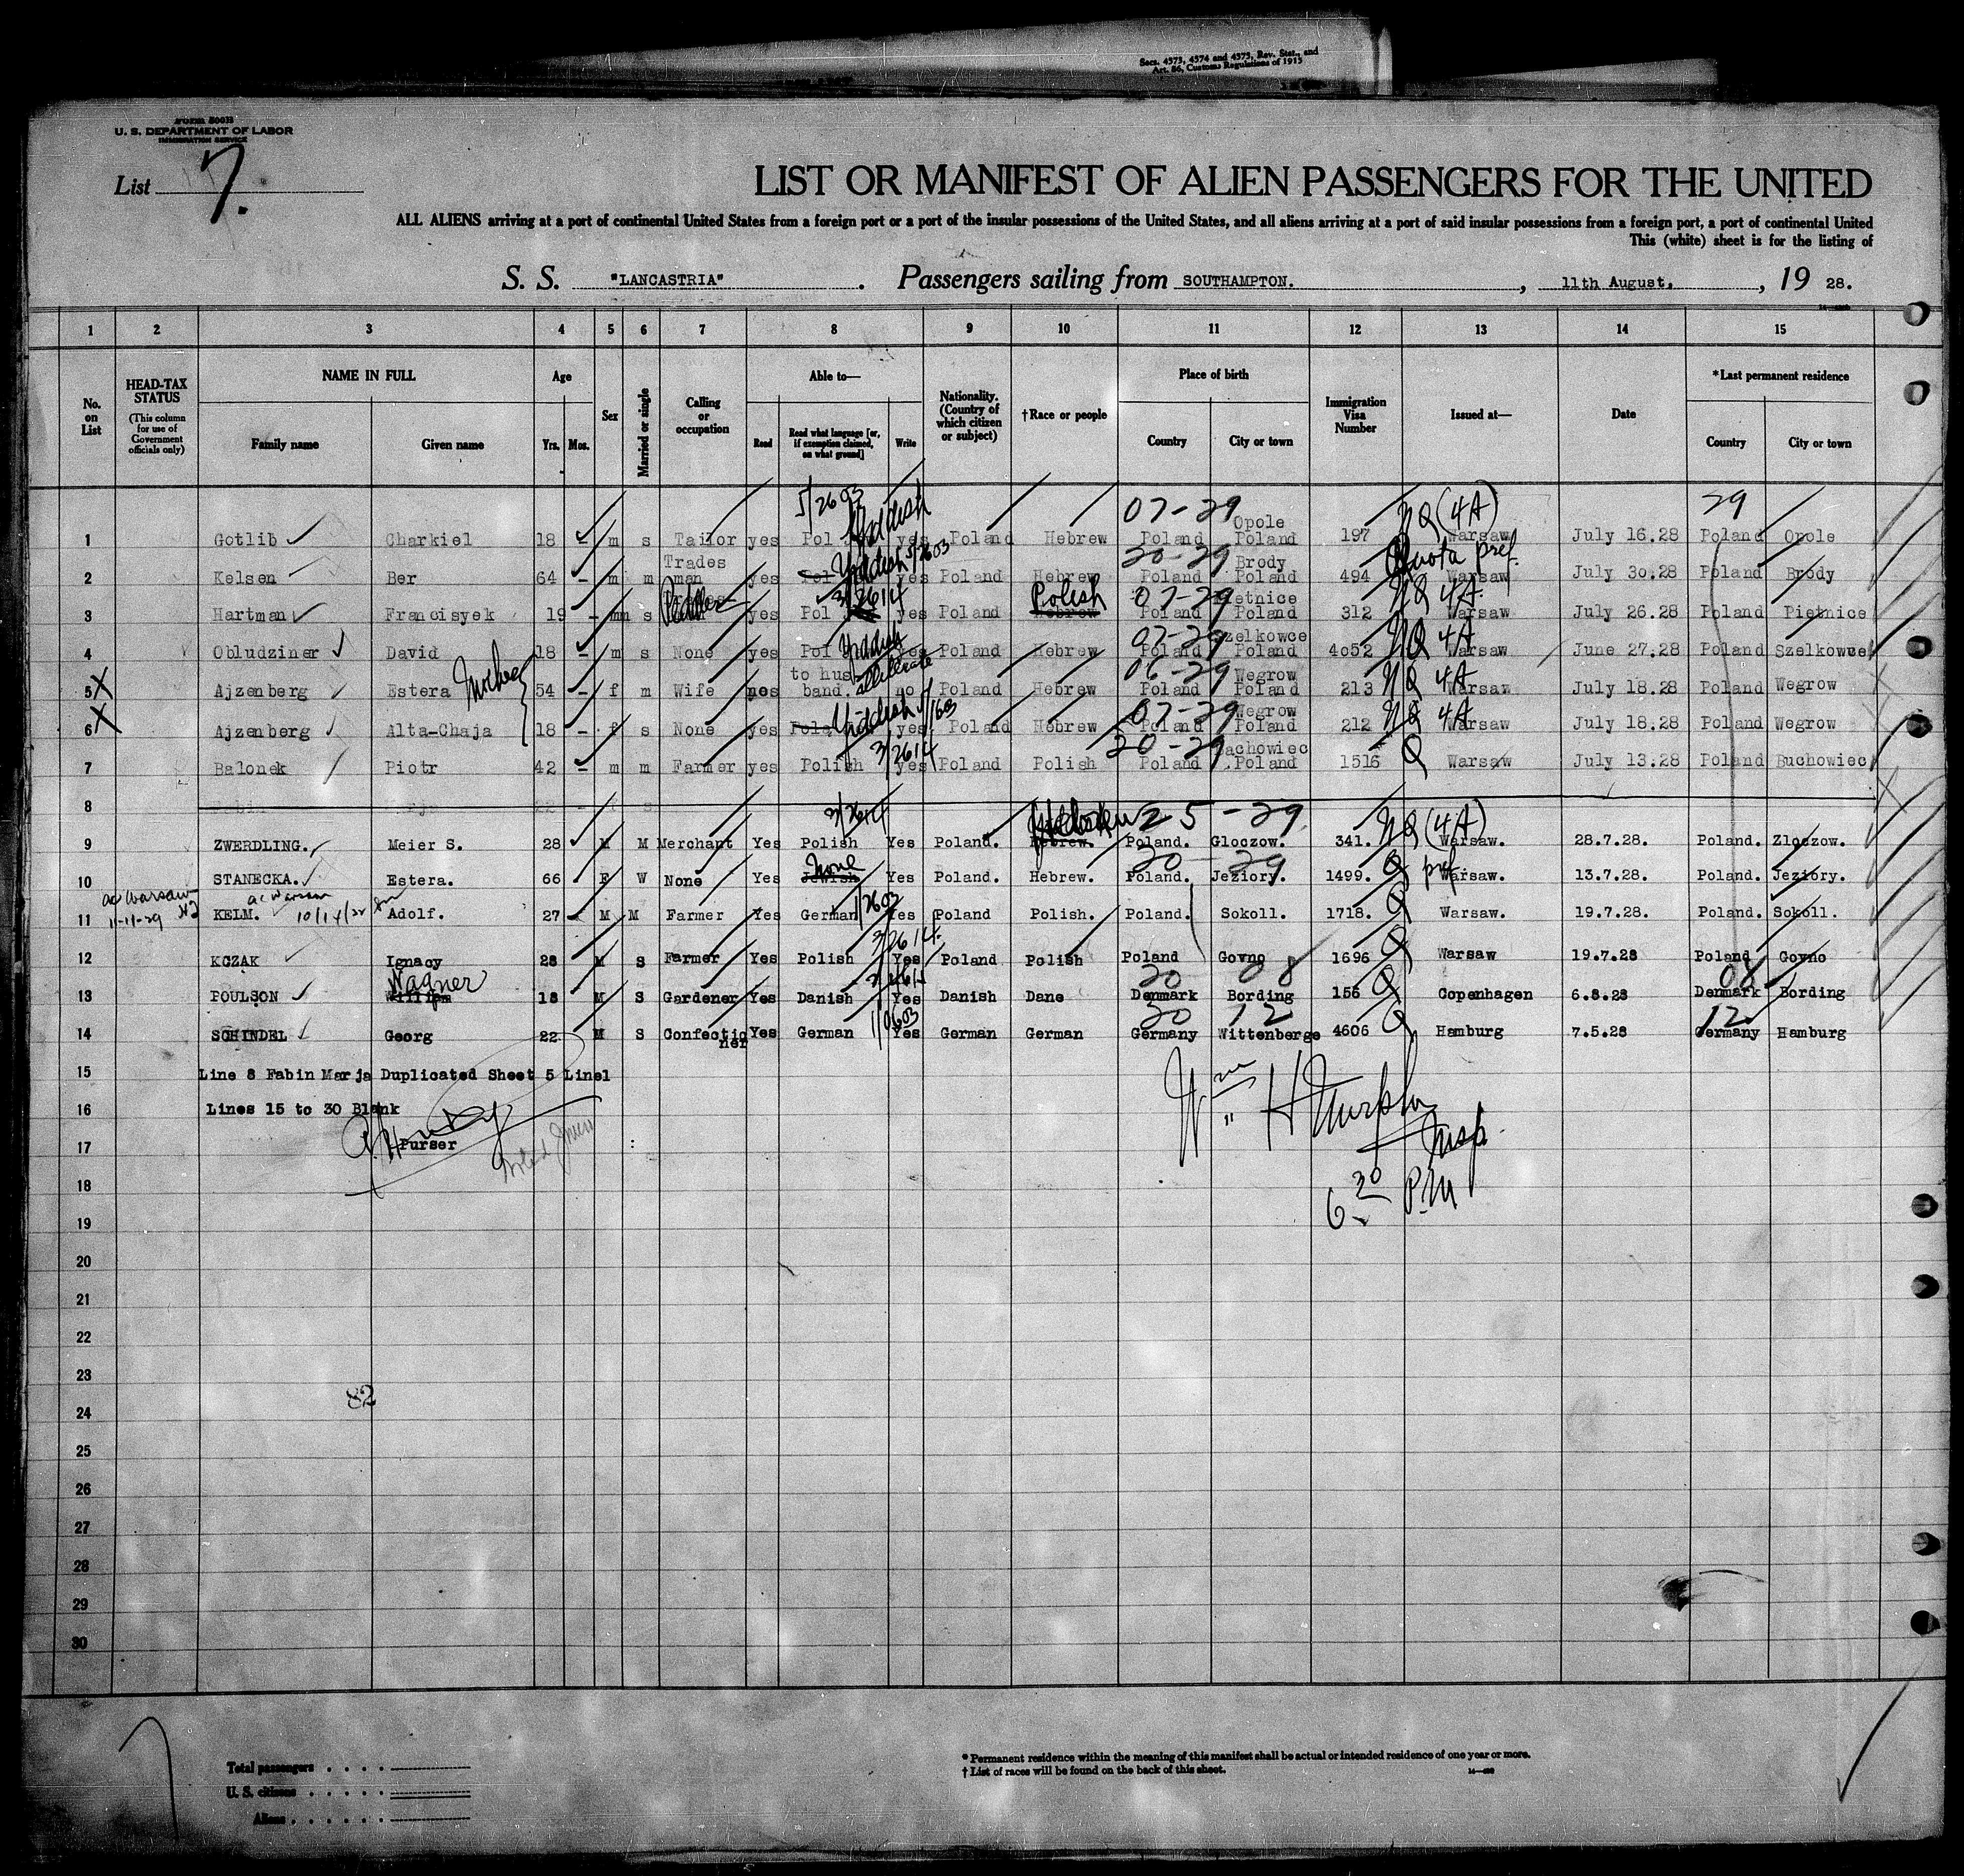 Secs. 4573, 4574 and 4575, Rev. Stat., and
Art. 86, Customs Regulations of 1915
U. S. DEPARTMENT OF LABOR
IMMIGRATION SERVICE
List 7.
LIST OR MANIFEST OF ALIEN PASSENGERS FOR THE UNITED
ALL ALIENS arriving at a port of continental United States from a foreign port or a port of the insular possessions of the United States, and all aliens arriving at a port of said insular possessions from a foreign port, a port of continental United
This (white) sheet is for the listing of
S. S. "LANCASTRIA" . Passengers sailing from SOUTHAMPTON. , 11th August. , 19 28.
1 2 3 4 5 6 7 8 9 10 11 12 13 14 15
No. on List
HEAD-TAX STATUS (This column for use of Government officials only)
NAME IN FULL Family name Given name
Age Yrs. Mos.
Sex
Married or single
Calling or occupation
Able to— Read Read what language [or, if exemption claimed, on what ground] Write
Nationality. (Country of which citizen or subject)
†Race or people
Place of birth Country City or town
Immigration Visa Number
Issued at—
Date
*Last permanent residence Country City or town
5/2603 Yiddish 07-29 NQ (4A) 29
1 Gotlib Charkiel 18 - m s Tailor yes Pol yes Poland Hebrew Poland Opole Poland 197 Warsaw July 16.28 Poland Opole
Yiddish 5/2603 20-29 Quota pref.
2 Kelsen Ber 64 - m m Trades man yes Pol yes Poland Hebrew Poland Brody Poland 494 Warsaw July 30.28 Poland Brody
Peddler 3/2614 Polish 07-29 NQ 4A
3 Hartman Francisyek 19 - m s yes Pol yes Poland Hebrew Poland Pietnice Poland 312 Warsaw July 26.28 Poland Pietnice
Yiddish 07-29 NQ 4A
4 Obludziner David 18 - m s None yes Pol yes Poland Hebrew Poland Szelkowce Poland 4052 Warsaw June 27.28 Poland Szelkowce
X Mother illiterate 06-29 NQ 4A
5 Ajzenberg Estera 54 - f m Wife to husband. no Poland Hebrew Poland Wegrow Poland 213 Warsaw July 18.28 Poland Wegrow
X Yiddish 07-29 NQ 4A
6 Ajzenberg Alta-Chaja 18 - f s None yes yes Poland Hebrew Poland Wegrow Poland 212 Warsaw July 18.28 Poland Wegrow
3/2614 20-29 Q
7 Balonek Piotr 42 - m m Farmer yes Polish yes Poland Polish Poland Poland 1516 Warsaw July 13.28 Poland Buchowiec
8
3/2614 25-29 NQ (4A)
9 ZWERDLING. Meier S. 28 M M Merchant Yes Polish Yes Poland. Hebrew. Poland. Gloczow. 341. Warsaw. 28.7.28. Poland. Zloczow.
None 20-29 Q pref
10 STANECKA. Estera. 66 F W None Yes Jewish Yes Poland. Hebrew. Poland. Jeziory. 1499. Warsaw. 13.7.28. Poland. Jeziory.
ac Warsaw 11-11-29 ac Warsaw 1/2603 Q
11 KELM. Adolf. 27 M M Farmer Yes German Yes Poland Polish. Poland. Sokoll. 1718. Warsaw. 19.7.28. Poland. Sokoll.
3/2614 Q
12 KOZAK Ignacy 28 M S Farmer Yes Polish Yes Poland Polish Poland Govno 1696 Warsaw 19.7.28 Poland Govno
Wagner 20 08 Q 08
13 POULSON William 18 M S Gardener Yes Danish Yes Danish Dane Denmark Bording 156 Copenhagen 6.8.28 Denmark Bording
1/0603 20 12 Q 12
14 SCHINDEL Georg 22 M S Confectioner Yes German Yes German German Germany Wittenberge 4606 Hamburg 7.5.28 Germany Hamburg
15 Line 8 Fabin Marja Duplicated Sheet 5 Line1
16 Lines 15 to 30 Blank
17 Purser
Wm H Murphy
Insp.
6 30 P.M
18
19
20
21
22
23
82
24
25
26
27
28
29
30
Total passengers
U. S. citizens
Aliens
* Permanent residence within the meaning of this manifest shall be actual or intended residence of one year or more.
† List of races will be found on the back of this sheet.